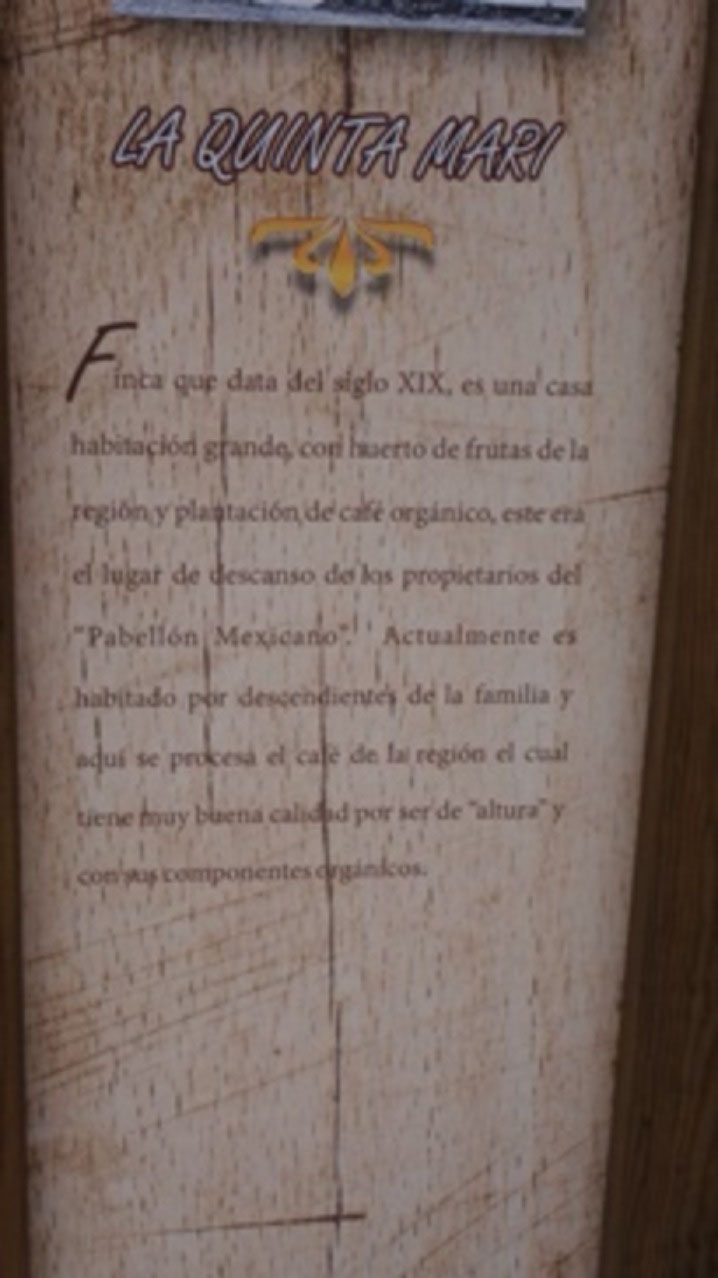 LA QUINTA MARI
Finca que data del siglo XIX, es una casa
habitación grande, con huerto de frutas de la
región y plantación de café orgánico, este era
el lugar de descanso de los propietarios del
"Pabellón Mexicano". Actualmente es
habitado por descendientes de la familia y
aquí se procesa el café de la región el cual
tiene muy buena calidad por ser de "altura" y
con sus componentes orgánicos.